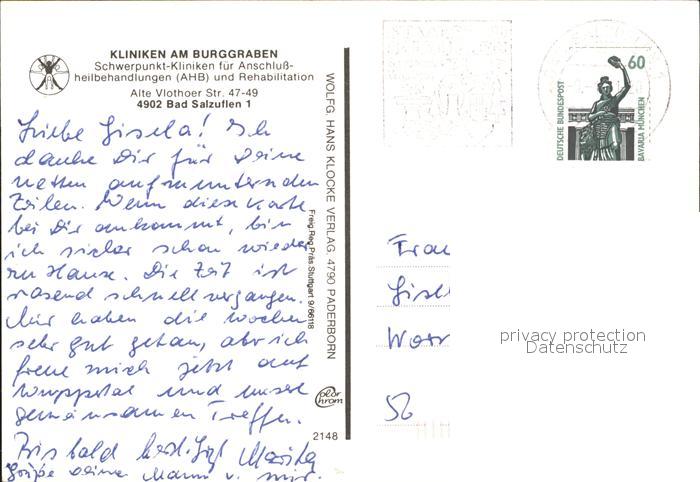 KLINIKEN AM BURGGRABEN
Schwerpunkt-Kliniken für Anschluß-
heilbehandlungen (AHB) und Rehabilitation
Alte Vlothoer Str. 47-49
4902 Bad Salzuflen 1
Liebe Gisela! Ich
danke Dir für Deine
netten aufmunternden
Zeilen. Wenn diese Karte
bei Dir ankommt, bin
ich sicher schon wieder
zu Hause. Die Zeit ist
rasend schnell vergangen.
Mir haben die Wochen
sehr gut getan, aber ich
freue mich jetzt auf
Wuppertal und unser
gemeinsamen Treffen.
Bis bald herzl. Marita
Grüße deinen Mann v. mir.
WOLFG. HANS KLOCKE VERLAG 4790 PADERBORN
Freig. Reg. Präs. Stuttgart 9/66118
color
chrom
2148
DEUTSCHE BUNDESPOST
60
BAVARIA MÜNCHEN
Frau
Gisel
privacy protection
Datenschutz
56